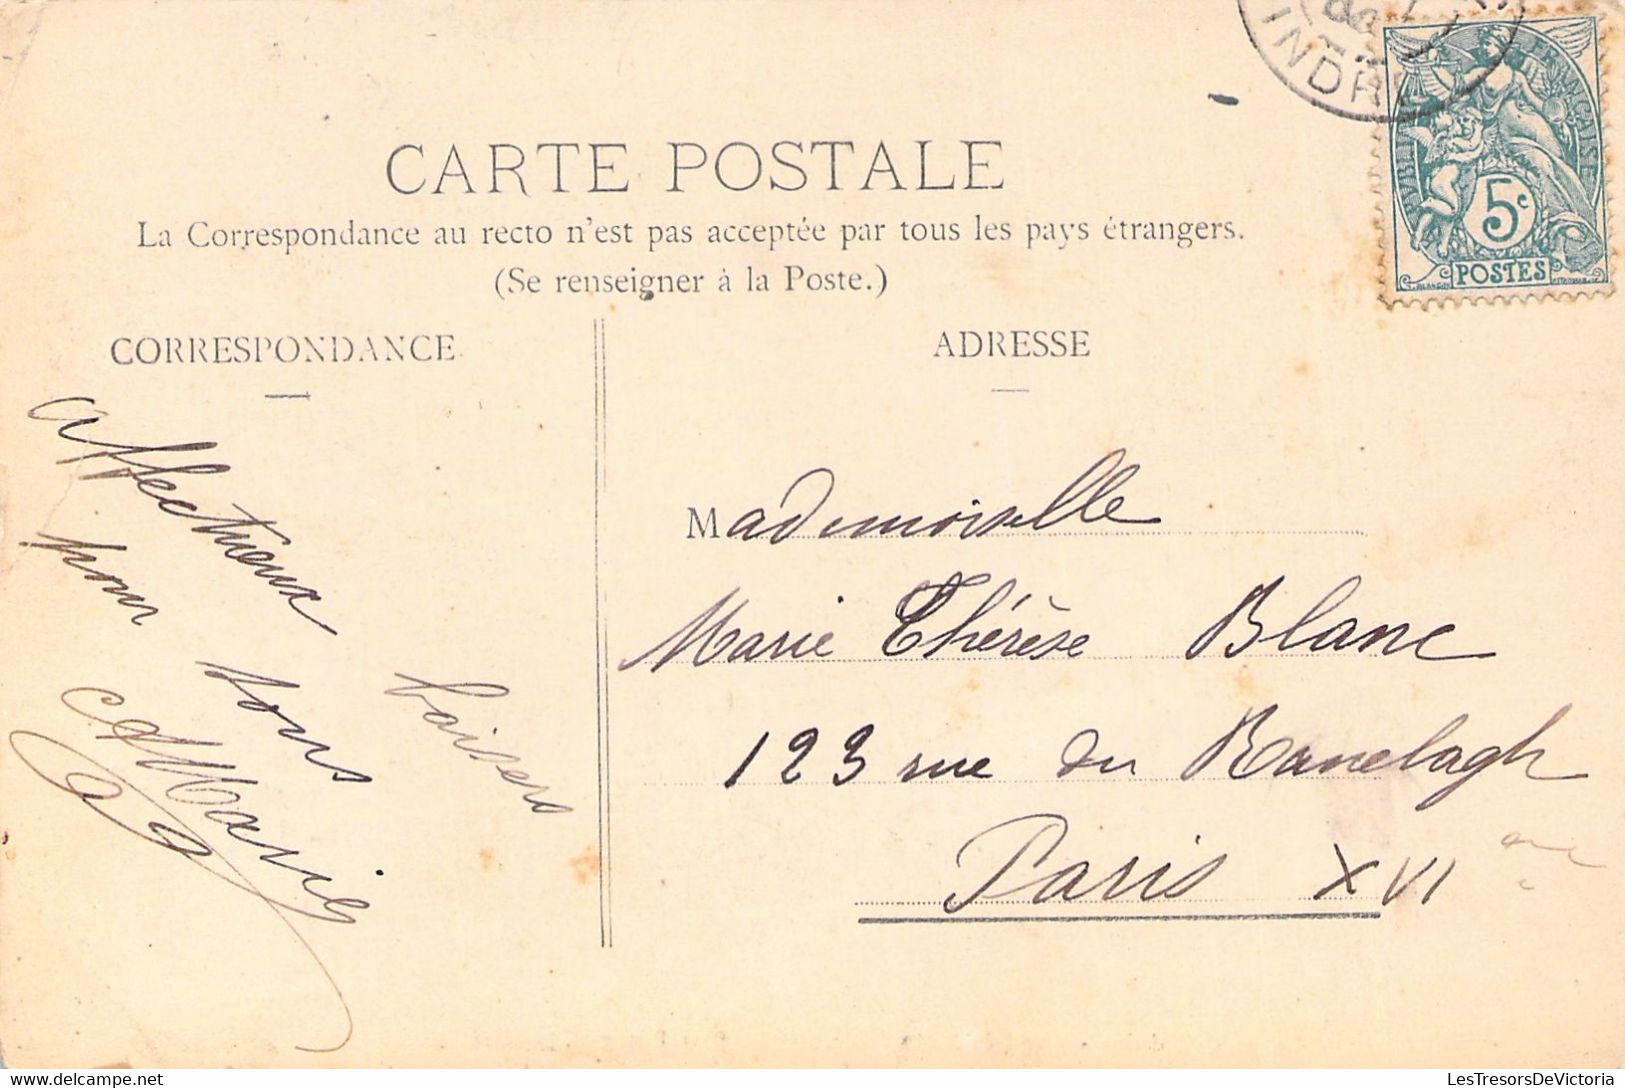 INDRE
RÉPUBLIQUE FRANÇAISE
5c
POSTES
CARTE POSTALE
La Correspondance au recto n'est pas acceptée par tous les pays étrangers.
(Se renseigner à la Poste.)
CORRESPONDANCE
ADRESSE
affectueux baisers
pour tous
Marie
Mademoiselle
Marie Thérèse Blanc
123 rue du Ranelagh
Paris XVI
LesTresorsDeVictoria